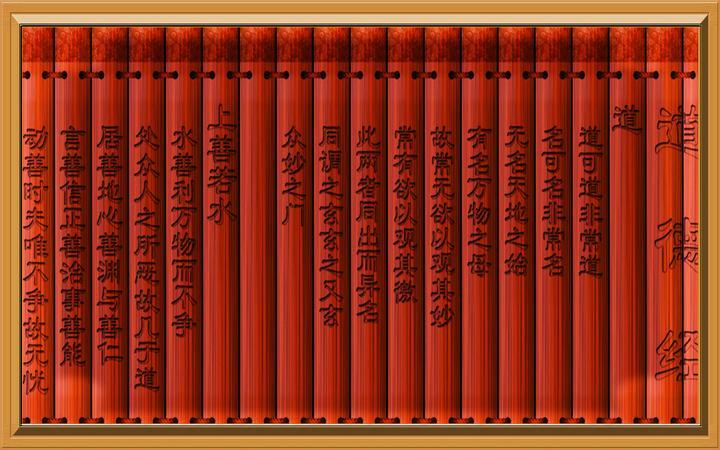 道德经
道
道可道非常道
名可名非常名
无名天地之始
有名万物之母
故常无欲以观其妙
常有欲以观其徼
此两者同出而异名
同谓之玄玄之又玄
众妙之门
上善若水
水善利万物而不争
处众人之所恶故几于道
居善地心善渊与善仁
言善信正善治事善能
动善时夫唯不争故无忧